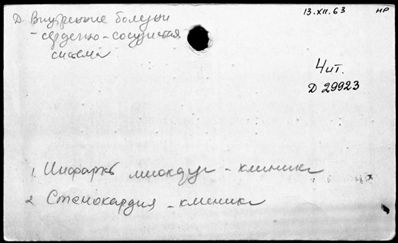 Д Внутренние болезни
13.XII.63
НР
- сердечно-сосудистая
система
Чит.
Д 29923
1. Инфаркт миокарда - клиника
2. Стенокардия - клиника